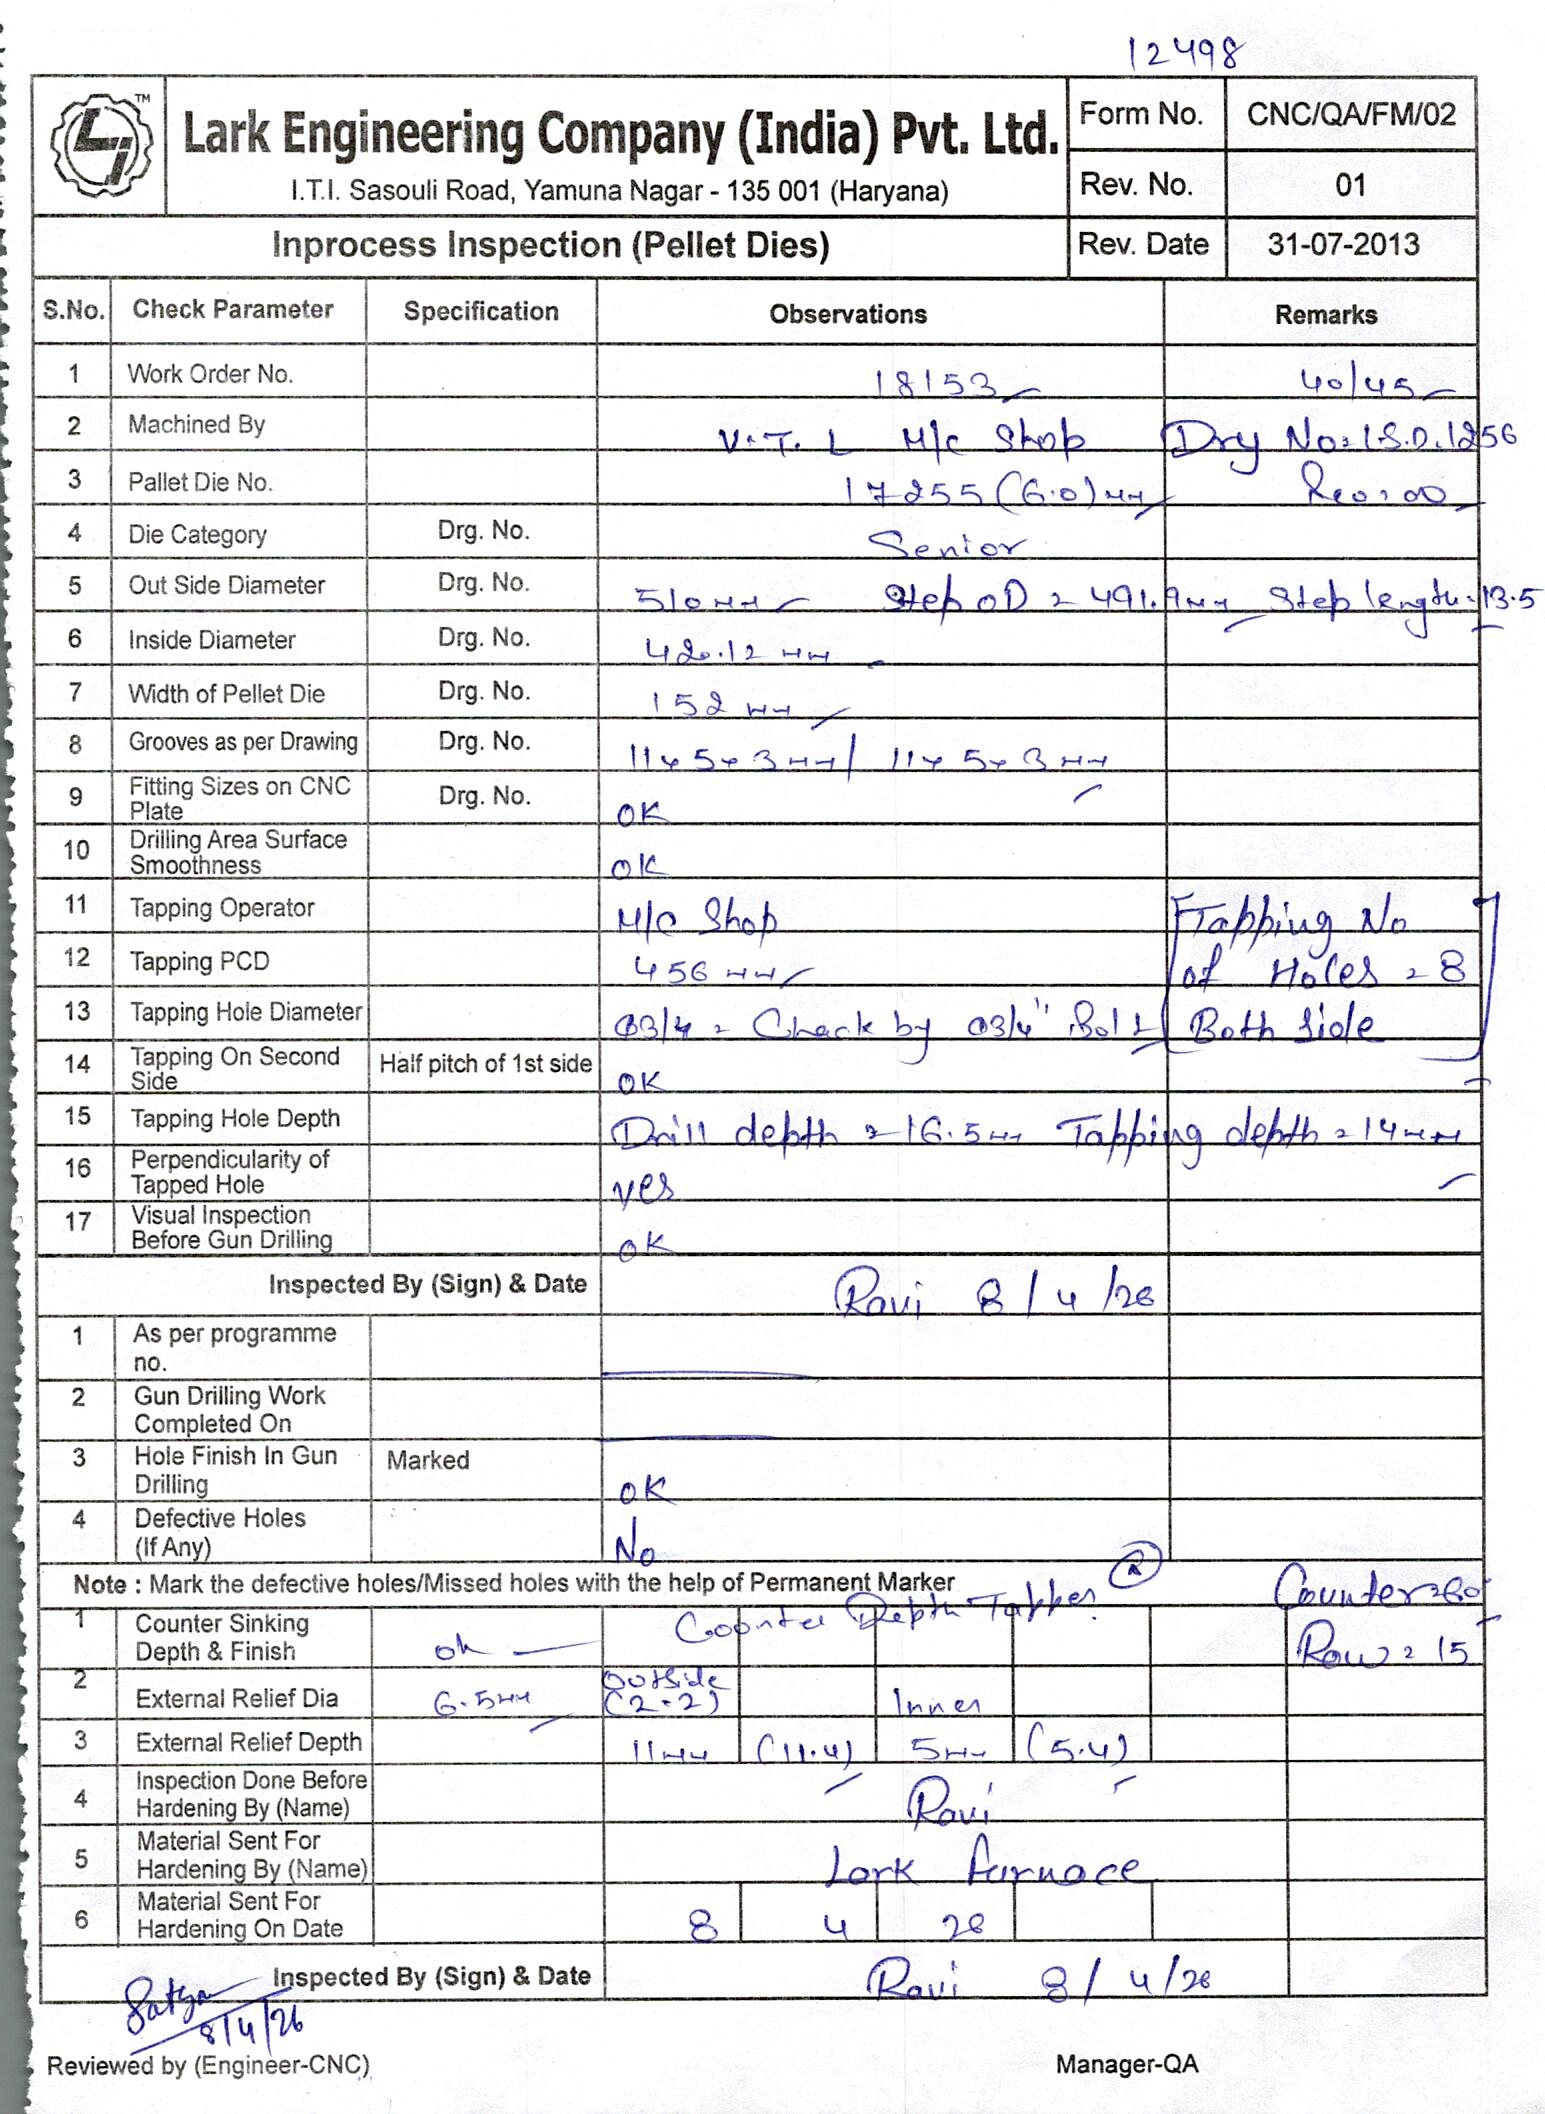 12498
TM
Lark Engineering Company (India) Pvt. Ltd.
I.T.I. Sasouli Road, Yamuna Nagar - 135 001 (Haryana)
Form No. CNC/QA/FM/02
Rev. No. 01
Inprocess Inspection (Pellet Dies) Rev. Date 31-07-2013
S.No. Check Parameter Specification Observations Remarks
1 Work Order No. 18153 40/45
2 Machined By V.T.L M/c Shop Drg No: I.S.D.1256
3 Pallet Die No. 17255 (6.0) mm Rev: 00
4 Die Category Drg. No. Senior
5 Out Side Diameter Drg. No. 510 mm Step OD = 491.9 mm Step length = 13.5
6 Inside Diameter Drg. No. 420.12 mm
7 Width of Pellet Die Drg. No. 152 mm
8 Grooves as per Drawing Drg. No. 11x5x3mm / 11x5x3mm
9 Fitting Sizes on CNC Plate Drg. No. OK
10 Drilling Area Surface Smoothness OK
11 Tapping Operator M/c Shop Tapping No
12 Tapping PCD 456 mm of Holes = 8
13 Tapping Hole Diameter Ø3/4 = Check by Ø3/4" Bolt Both Side
14 Tapping On Second Side Half pitch of 1st side OK
15 Tapping Hole Depth Drill depth = 16.5mm Tapping depth = 14mm
16 Perpendicularity of Tapped Hole yes
17 Visual Inspection Before Gun Drilling OK
Inspected By (Sign) & Date Ravi 8/4/26
1 As per programme no.
2 Gun Drilling Work Completed On
3 Hole Finish In Gun Drilling Marked OK
4 Defective Holes (If Any) No
Note : Mark the defective holes/Missed holes with the help of Permanent Marker R
1 Counter Sinking Depth & Finish ok Counter Depth Tapper Counter = 60°
Row = 15
2 External Relief Dia 6.5mm Outside (2-2) Inner
3 External Relief Depth 11mm (11.4) 5mm (5.4)
4 Inspection Done Before Hardening By (Name) Ravi
5 Material Sent For Hardening By (Name) Lark furnace
6 Material Sent For Hardening On Date 8 4 26
Inspected By (Sign) & Date Ravi 8/4/26
Satya
8/4/26
Reviewed by (Engineer-CNC) Manager-QA